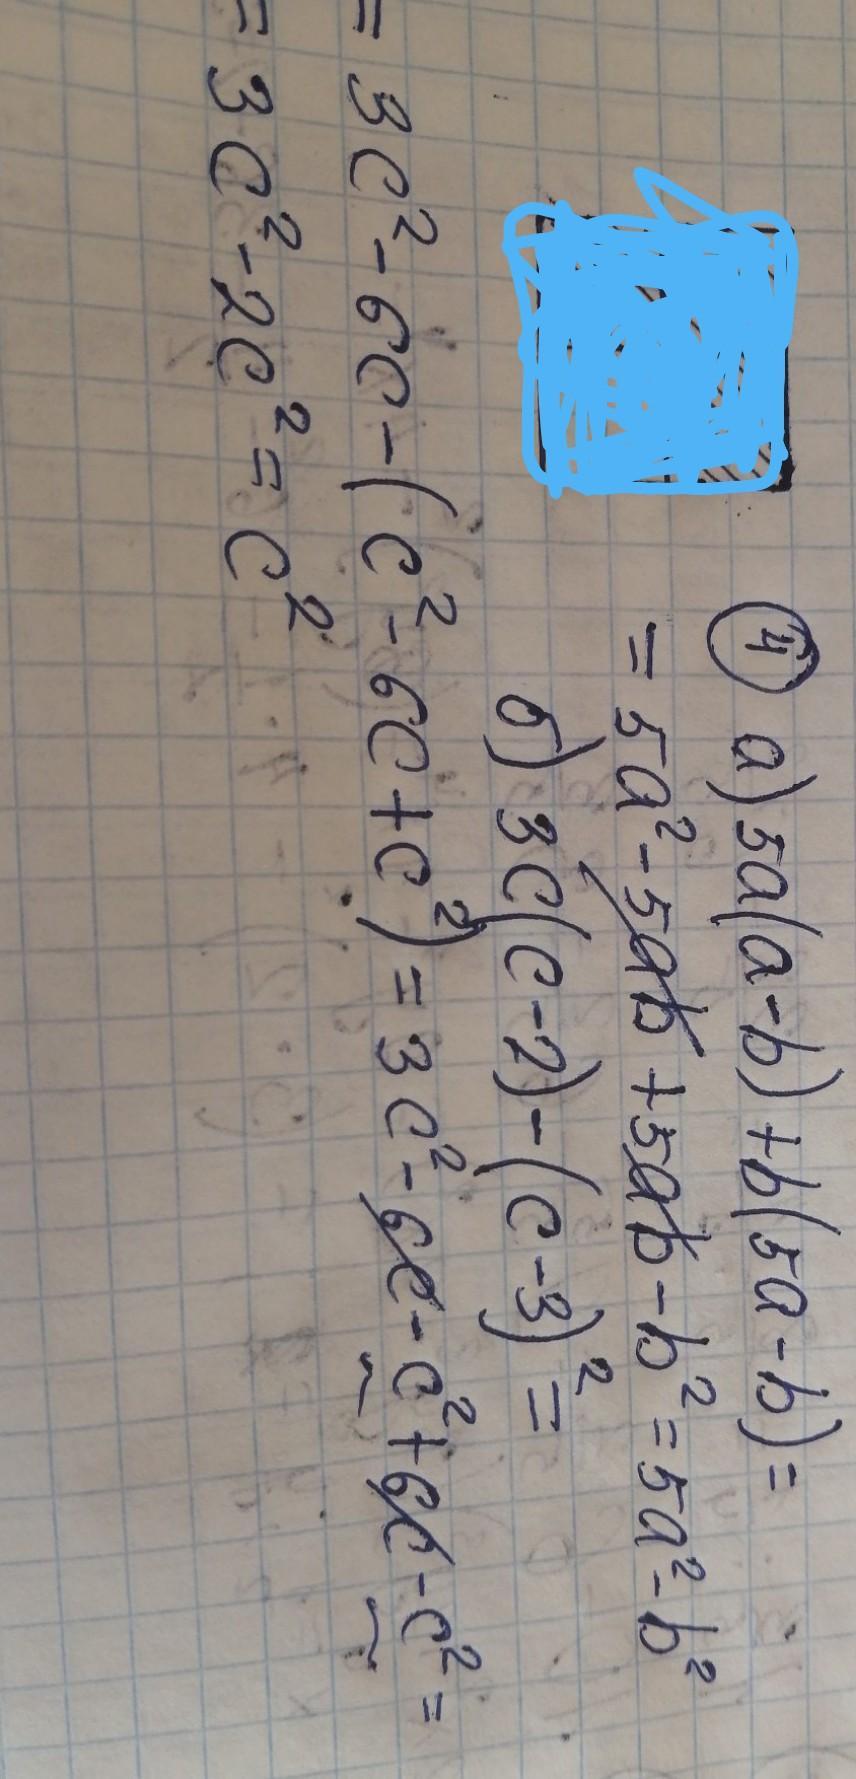 4) а) 5a(a-b)+b(5a-b)=
=5a²-5ab+5ab-b²=5a²-b²
б) 3c(c-2)-(c-3)²=
=3c²-6c-(c²-6c+c²)=3c²-6c-c²+6c-c²=
=3c²-2c²=c²